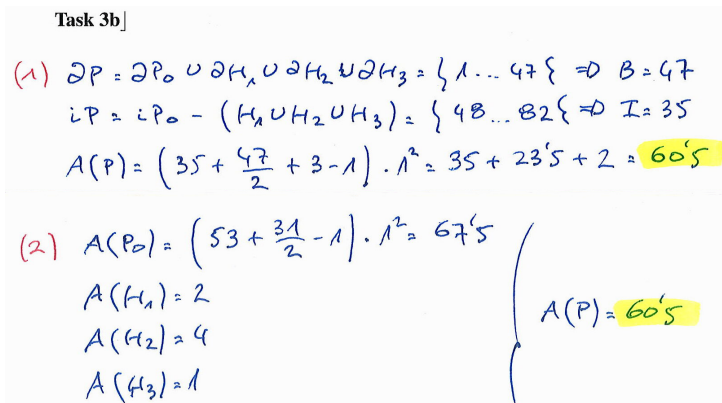 Task 3b]
(1) ∂P = ∂P₀ ∪ ∂H₁ ∪ ∂H₂ ∪ ∂H₃ = {1... 47{ ⇒ B = 47
iP = iP₀ - (H₁∪H₂∪H₃) = {48... 82{ ⇒ I = 35
A(P) = (35 + 47/2 + 3-1) · 1² = 35 + 23'5 + 2 = 60'5
(2) A(P₀) = (53 + 31/2 - 1) · 1² = 67'5
A(H₁) = 2
A(P) = 60'5
A(H₂) = 4
A(H₃) = 1